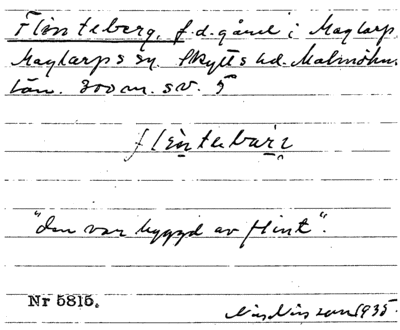 Flinteberg, f.d. gård i Maglarp,
Maglarps sn. Skytts hd. Malmöhu.
län. 800 m. sv. 5
flintebarj
"den var byggd av flint".
Nr 5815.
Nils Nilsson 1935.